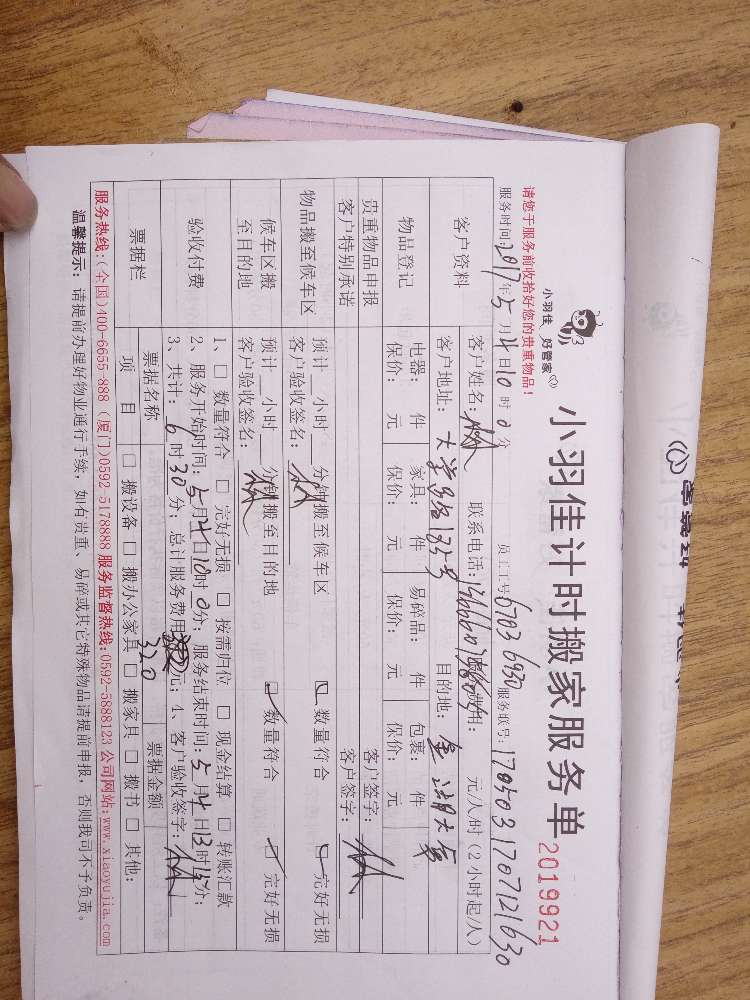 小羽佳 好管家
小羽佳计时搬家服务单
2019921
请您于服务前收拾好您的贵重物品!
服务时间:2017年5月4日10时0分 员工工号:6703 6930 服务联号:1705031707121630
客户资料
客户姓名: 联系电话: 元/人/时(2小时起/人)
客户地址:大学路135号 目的地:金湖大
物品登记
电器: 件 家具: 件 易碎品: 件 包裹: 件
保价: 元 保价: 元 保价: 元 保价: 元
贵重物品申报 客户签字:
客户特别承诺 客户签字:
物品搬至候车区
预计__小时__分钟搬至候车区 数量符合 完好无损
客户验收签名:
候车区搬至目的地
预计__小时__分钟搬至目的地 数量符合 完好无损
客户验收签名:
验收付费
1、□ 数量符合 □ 完好无损 □ 按需归位 □ 现金结算 □ 转账汇款
2、服务开始时间:5月4日10时0分; 服务结束时间:5月4日13时15分;
3、共计:6时30分; 总计服务费用 元; 4、客户验收签字:
320
票据栏
票据名称 票据金额
项 目 □ 搬设备 □ 搬办公家具 □ 搬家具 □ 搬书 □ 其他:
服务热线:(全国)400-6655-888 (厦门)0592-5178888 服务监督热线:0592-5888123 公司网站:www.xiaoyujia.com
温馨提示: 请提前办理好物业通行手续, 如有贵重、易碎或其它特殊物品请提前申报, 否则我司不予负责。